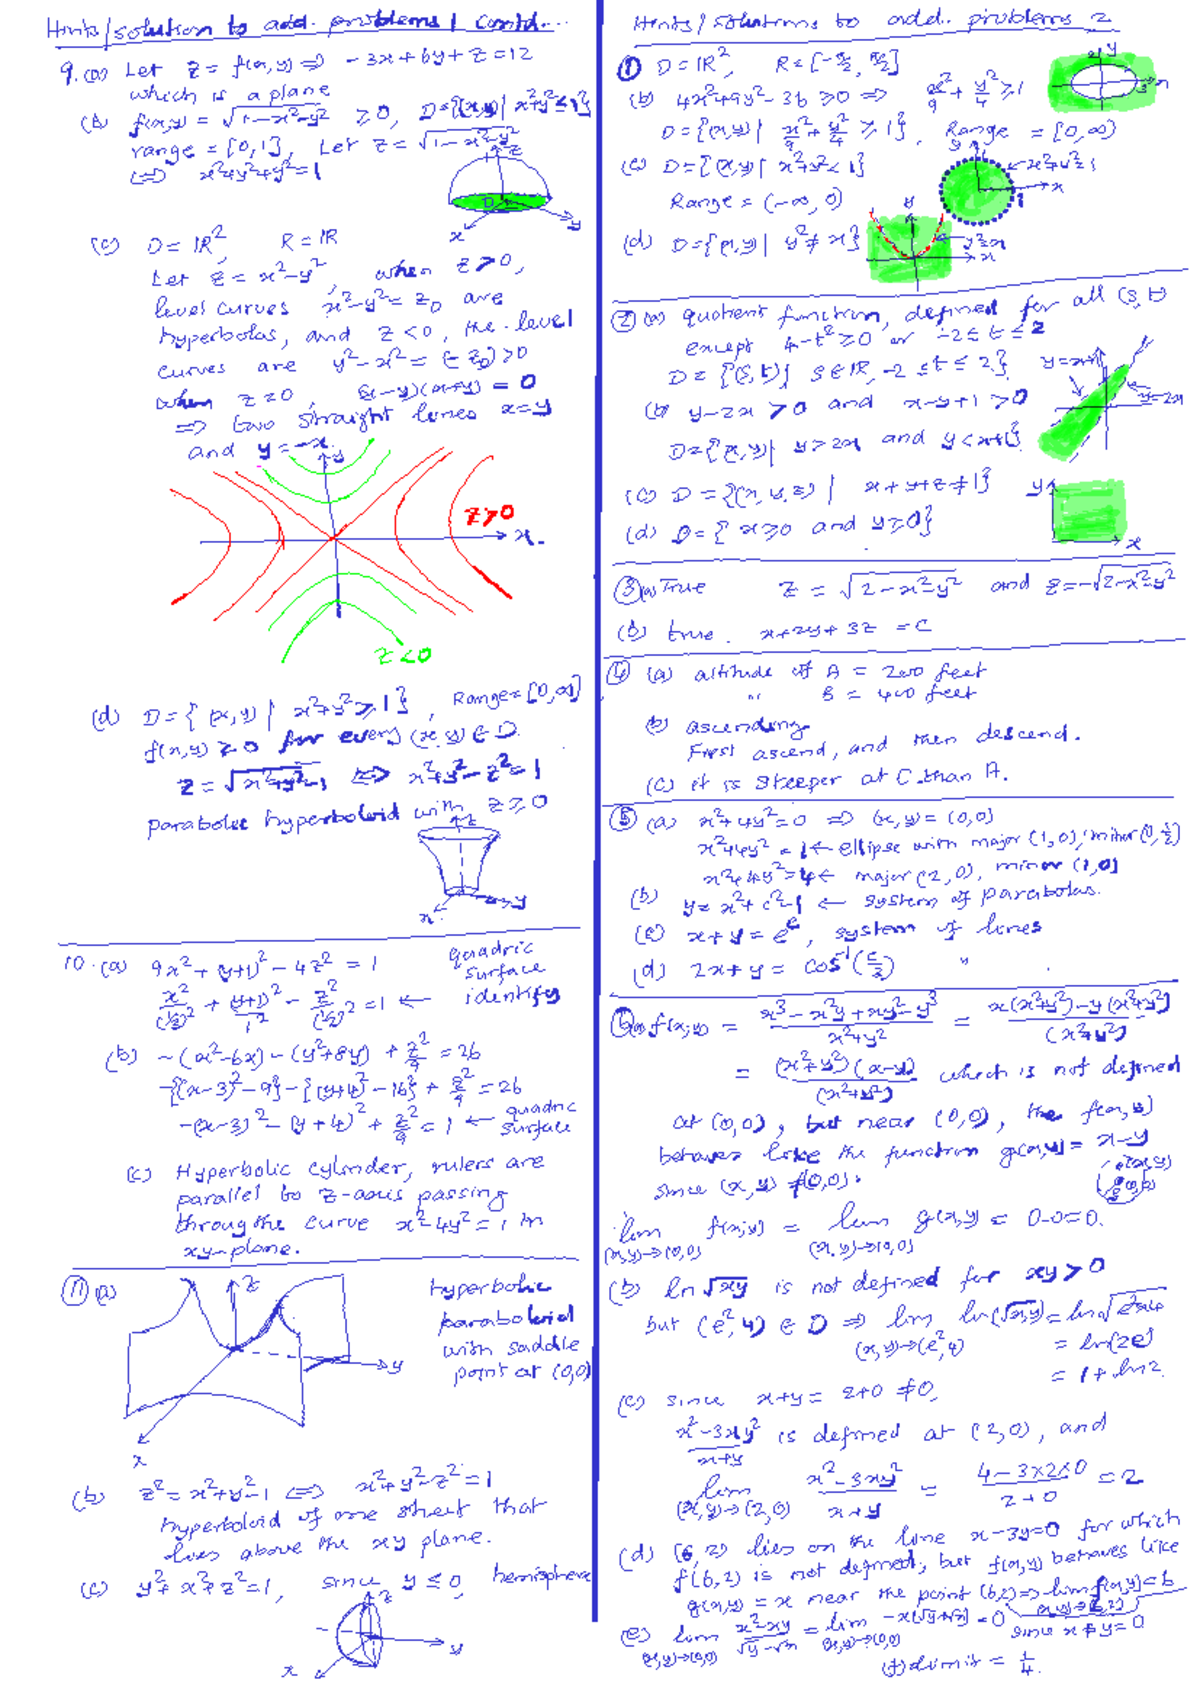 Hints/solution to add. problems 1 contd...
9. (a) Let z = f(x,y) ⇒ -3x+6y+z=12
which is a plane
(b) f(x,y) = √1-x²-y² ≥0, D={(x,y)| x²+y²≤1}
range = [0,1], Let z = √1-x²-y²
⇔ x²+y²+z²=1
z
D
x
y
(c) D = IR², R = IR
Let z = x²-y², when z>0,
level curves x²-y²= z₀ are
hyperbolas, and z<0, the level
curves are y²-x² = (-z₀)>0
when z=0, (x-y)(x+y) = 0
⇒ two straight lines x=y
and y=-x.
y
z>0
x.
z<0
(d) D = { (x,y) | x²+y²≥1}, Range=[0,∞]
f(x,y) ≥0 for every (x,y) ∈ D.
z = √x²+y²-1 ⇔ x²+y²-z²=1
parabolic hyperboloid with z≥0
z
y
x
10. (a) 9x² + (y+1)² - 4z² = 1 quadric
surface
identify
x²/(1/3)² + (y+1)²/1² - z²/(1/2)² = 1 ←
(b) -(x²-6x) - (y²+8y) + z²/9 = 26
-{(x-3)²-9}-{(y+4)²-16}+ z²/9 = 26
-(x-3)² - (y+4)² + z²/9 = 1 ← quadric
surface
(c) Hyperbolic cylinder, rulers are
parallel to z-axis passing
throug the curve x²-4y²=1 in
xy-plane.
11 (a)
z
y
x
hyperbolic
paraboloid
with saddle
point at (0,0)
(b) z² = x²+y²-1 ⇔ x²+y²-z²=1
hyperboloid of one sheet that
lies above the xy plane.
(c) y²+x²+z²=1, since y≤0, hemisphere
z
y
x
Hints/solutions to add. problems 2
1 D=IR², R=[-π/2, π/2]
(b) 4x²+9y²-36 ≥0 ⇒ x²/9 + y²/4 ≥1
2 y
3 x
D={(x,y)| x²/9+y²/4 ≥1}, Range = [0,∞)
(c) D={(x,y)| x²+y²<1}
y
x²+y²=1
x
1
Range = (-∞, 0)
(d) D={(x,y)| y²≠x}
y²=x
x
2 (a) quotient function, defined for all (s,t)
except 4-t²≥0 or -2≤t≤2
D = {(s,t)| s∈IR, -2≤t≤2.} y=x+1
(b) y-2x >0 and x-y+1 >0
y=2x
D={(x,y)| y>2x and y<x+1}
(c) D = {(x,y,z) | x+y+z≠1}
(d) D={ x≥0 and y≥0}
y
x
3 (a) True z = √2-x²-y² and z=-√2-x²-y²
(b) true. x+2y+3z = C
4 (a) altitude of A = 200 feet
" B = 400 feet
(b) ascending.
First ascend, and then descend.
(c) it is steeper at C than A.
5 (a) x²+4y²=0 ⇒ (x,y)=(0,0)
x²+4y²=1 ← ellipse with major (1,0), minor (0,1/2)
x²+4y²=4 ← major (2,0), minor (1,0)
(b) y=x²+c²-1 ← system of parabolas.
(c) x+y=eᶜ, system of lines
(d) 2x+y = cos⁻¹(c/2) " .
6 (a) f(x,y) = x³-x²y+xy²-y³/x²+y² = x(x²+y²)-y(x²+y²)/(x²+y²)
= (x²+y²)(x-y)/(x²+y²) which is not defined
at (0,0), but near (0,0), the f(x,y)
behaves like the function g(x,y)= x-y
since (x,y) ≠(0,0).
(x,y)
(0,0)
lim f(x,y) = lim g(x,y) = 0-0=0.
(x,y)→(0,0) (x,y)→(0,0)
(b) ln√xy is not defined for xy>0
but (e²,4) ∈ D ⇒ lim ln(√xy)=ln√e²×4
(x,y)→(e²,4) = ln(2e)
= 1+ln2.
(c) since x+y = 2+0 ≠0,
x²-3xy²/x+y is defined at (2,0), and
lim x²-3xy²/x+y = 4-3×2×0/2+0 = 2
(x,y)→(2,0)
(d) (6,2) lies on the line x-3y=0 for which
f(6,2) is not defined, but f(x,y) behaves like
g(x,y)=x near the point (6,2)⇒ lim f(x,y)=6
(x,y)→(6,2)
(e) lim x²-xy/√y-√x = lim -x(√y+√x)=0 since x≠y=0
(x,y)→(0,0) (x,y)→(0,0)
(f) limit = 1/4.